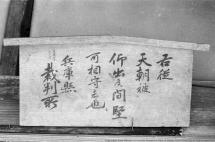 右従
天朝被
仰出候間堅
可相守者也
兵庫縣
裁判所